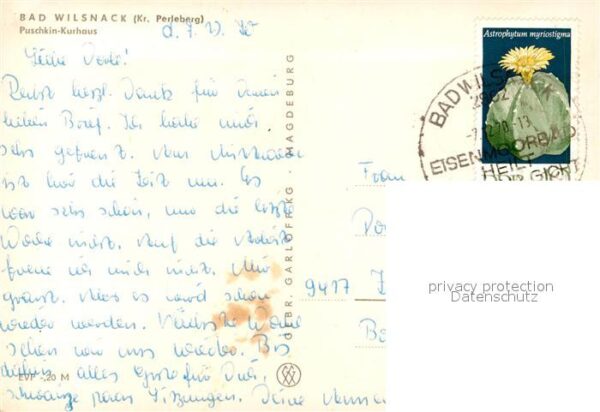 BAD WILSNACK (Kr. Perleberg)
Puschkin-Kurhaus
d. 7.
Liebe
Recht herzl. Dank für Deinen
lieben Brief. Ich habe mich
sehr gefreut. Am
ist hier die Zeit um. Es
war sehr schön, nur die letzte
Woche nicht. Auf die Arbeit
freue ich mich nicht. Mir
graust. Aber es wird schon
wieder werden. Nächste Woche
sehen wir uns wieder. Bis
dahin alles Gute für Dich,
Sitzungen. Deine
EVP -,20 M
GEBR. GARLOFF KG · MAGDEBURG
Astrophytum myriostigma
BAD WILSNACK
2902
EISENMOORBAD
HEILT
GICHT
Frau
9417
privacy protection
Datenschutz